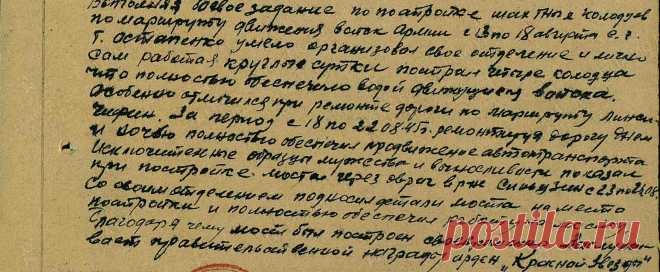 Выполняя боевое задание по постройке шахтных колодцев
по маршруту движения войск Армии с 13 по 18 августа с.г.
Т. Остапенко умело организовал свое отделение и лично
сам работая круглые сутки построил четыре колодца
что полностью обеспечило водой движущиеся войска.
Особенно отличился при ремонте дороги по маршруту Линси-
Чифын. За период с 18 по 22.08.45г. ремонтируя дорогу днем
и ночью полностью обеспечил продвижение автотранспорта
Исключительные образцы мужества и выносливости показал
при постройке моста через овраг в р-не с 23 по 08.
Со своим отделением подносил детали моста на место
постройки и полностью обеспечил
благодаря чему мост был построен своевременно.
вает правительственной награды орден "Красной Звезды"
postila.ru